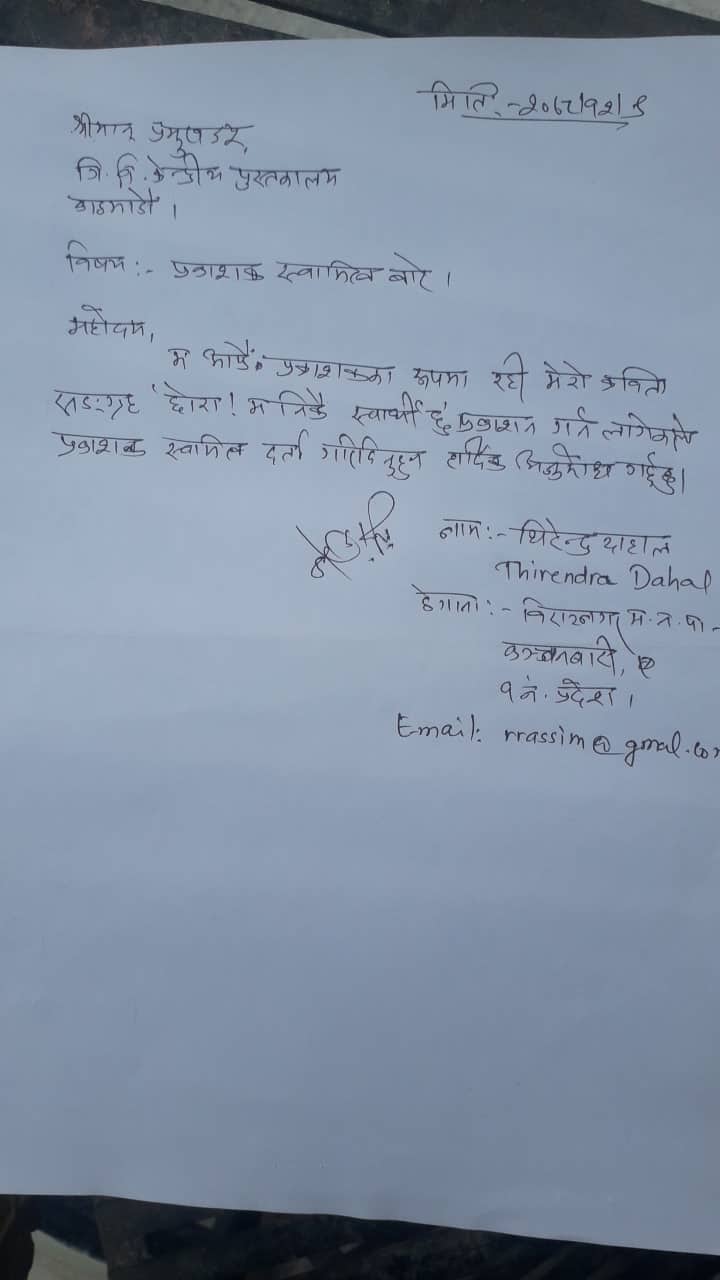 मिति:-२०७८।१२।९
श्रीमान् प्रमुखज्यू,
त्रि. वि. केन्द्रीय पुस्तकालय
काठमाडौं ।
विषय:- प्रकाशक स्वामित्व बारे ।
महोदय,
म आफैं प्रकाशकका रूपमा रही मेरो कविता
सङ्ग्रह 'छोरा! म निकै स्वार्थी छु' प्रकाशन गर्न लागेकाले
प्रकाशक स्वामित्व दर्ता गरिदिनुहुन हार्दिक अनुरोध गर्दछु।
नाम:- थिरेन्द्र दाहाल
Thirendra Dahal
ठेगाना:- विराटनगर म.न.पा-
कञ्चनबारी,
१ नं. प्रदेश ।
Email: rrassim@gmal.com